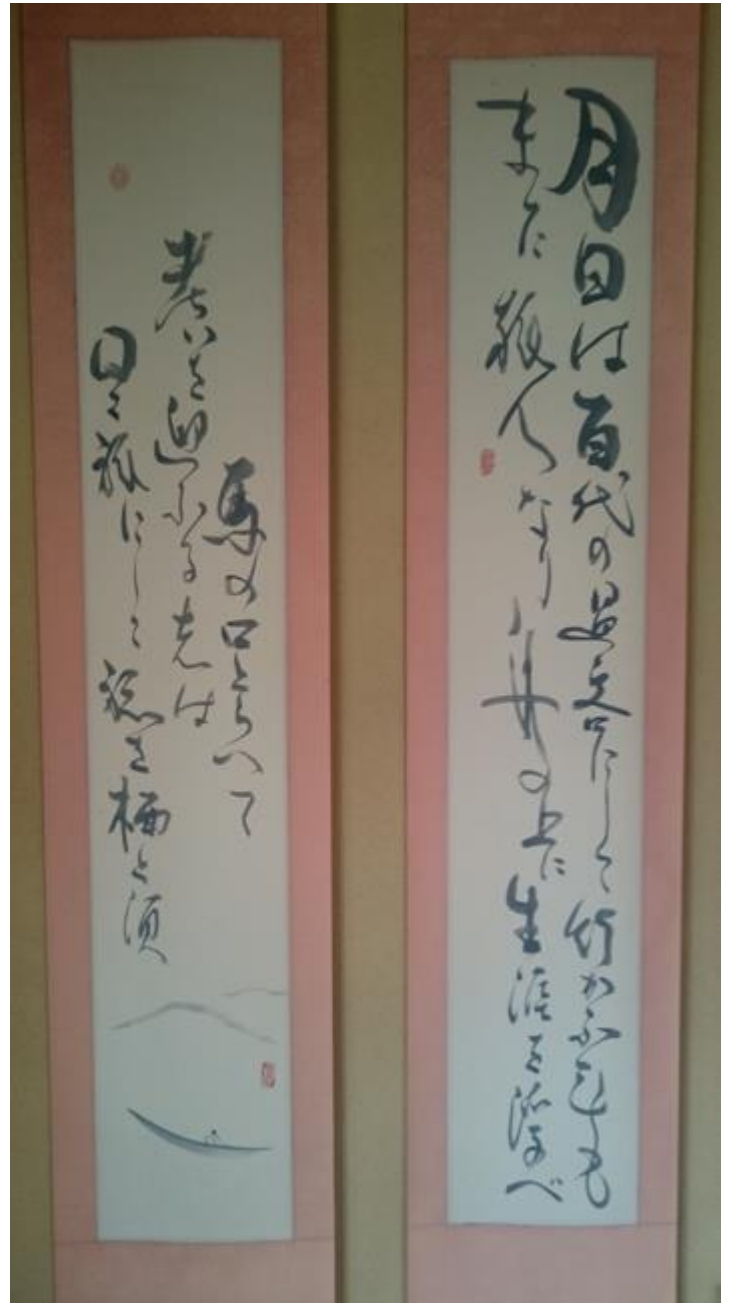 月日は百代の過客にして行かふ年も
また旅人なり舟の上に生涯を浮べ
馬の口とらへて
老いを迎ふる者は
日々旅にして旅を栖と須